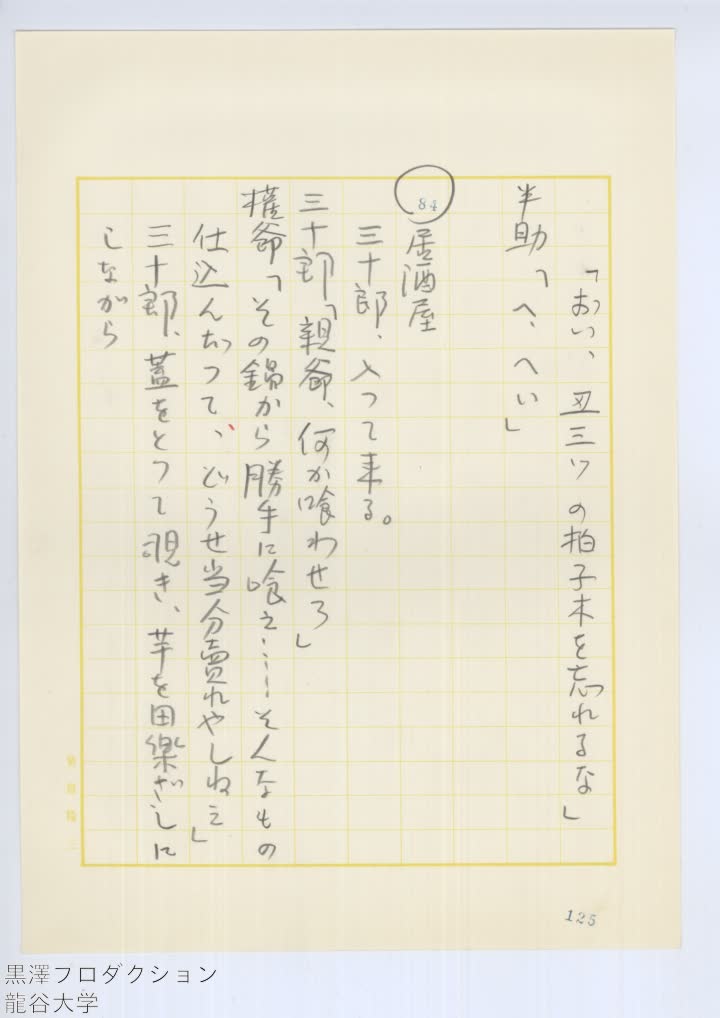 「おい、丑三ツの拍子木を忘れるな」
半助「へ、へい」
84
居酒屋
三十郎、入つて来る。
三十郎「親爺、何か喰わせろ」
権爺「その鍋から勝手に喰え……そんなもの
仕込んだつて、どうせ当分売れやしねえ」
三十郎、蓋をとつて覗き、芋を田樂ざしに
しながら
125
黒澤プロダクション
龍谷大学